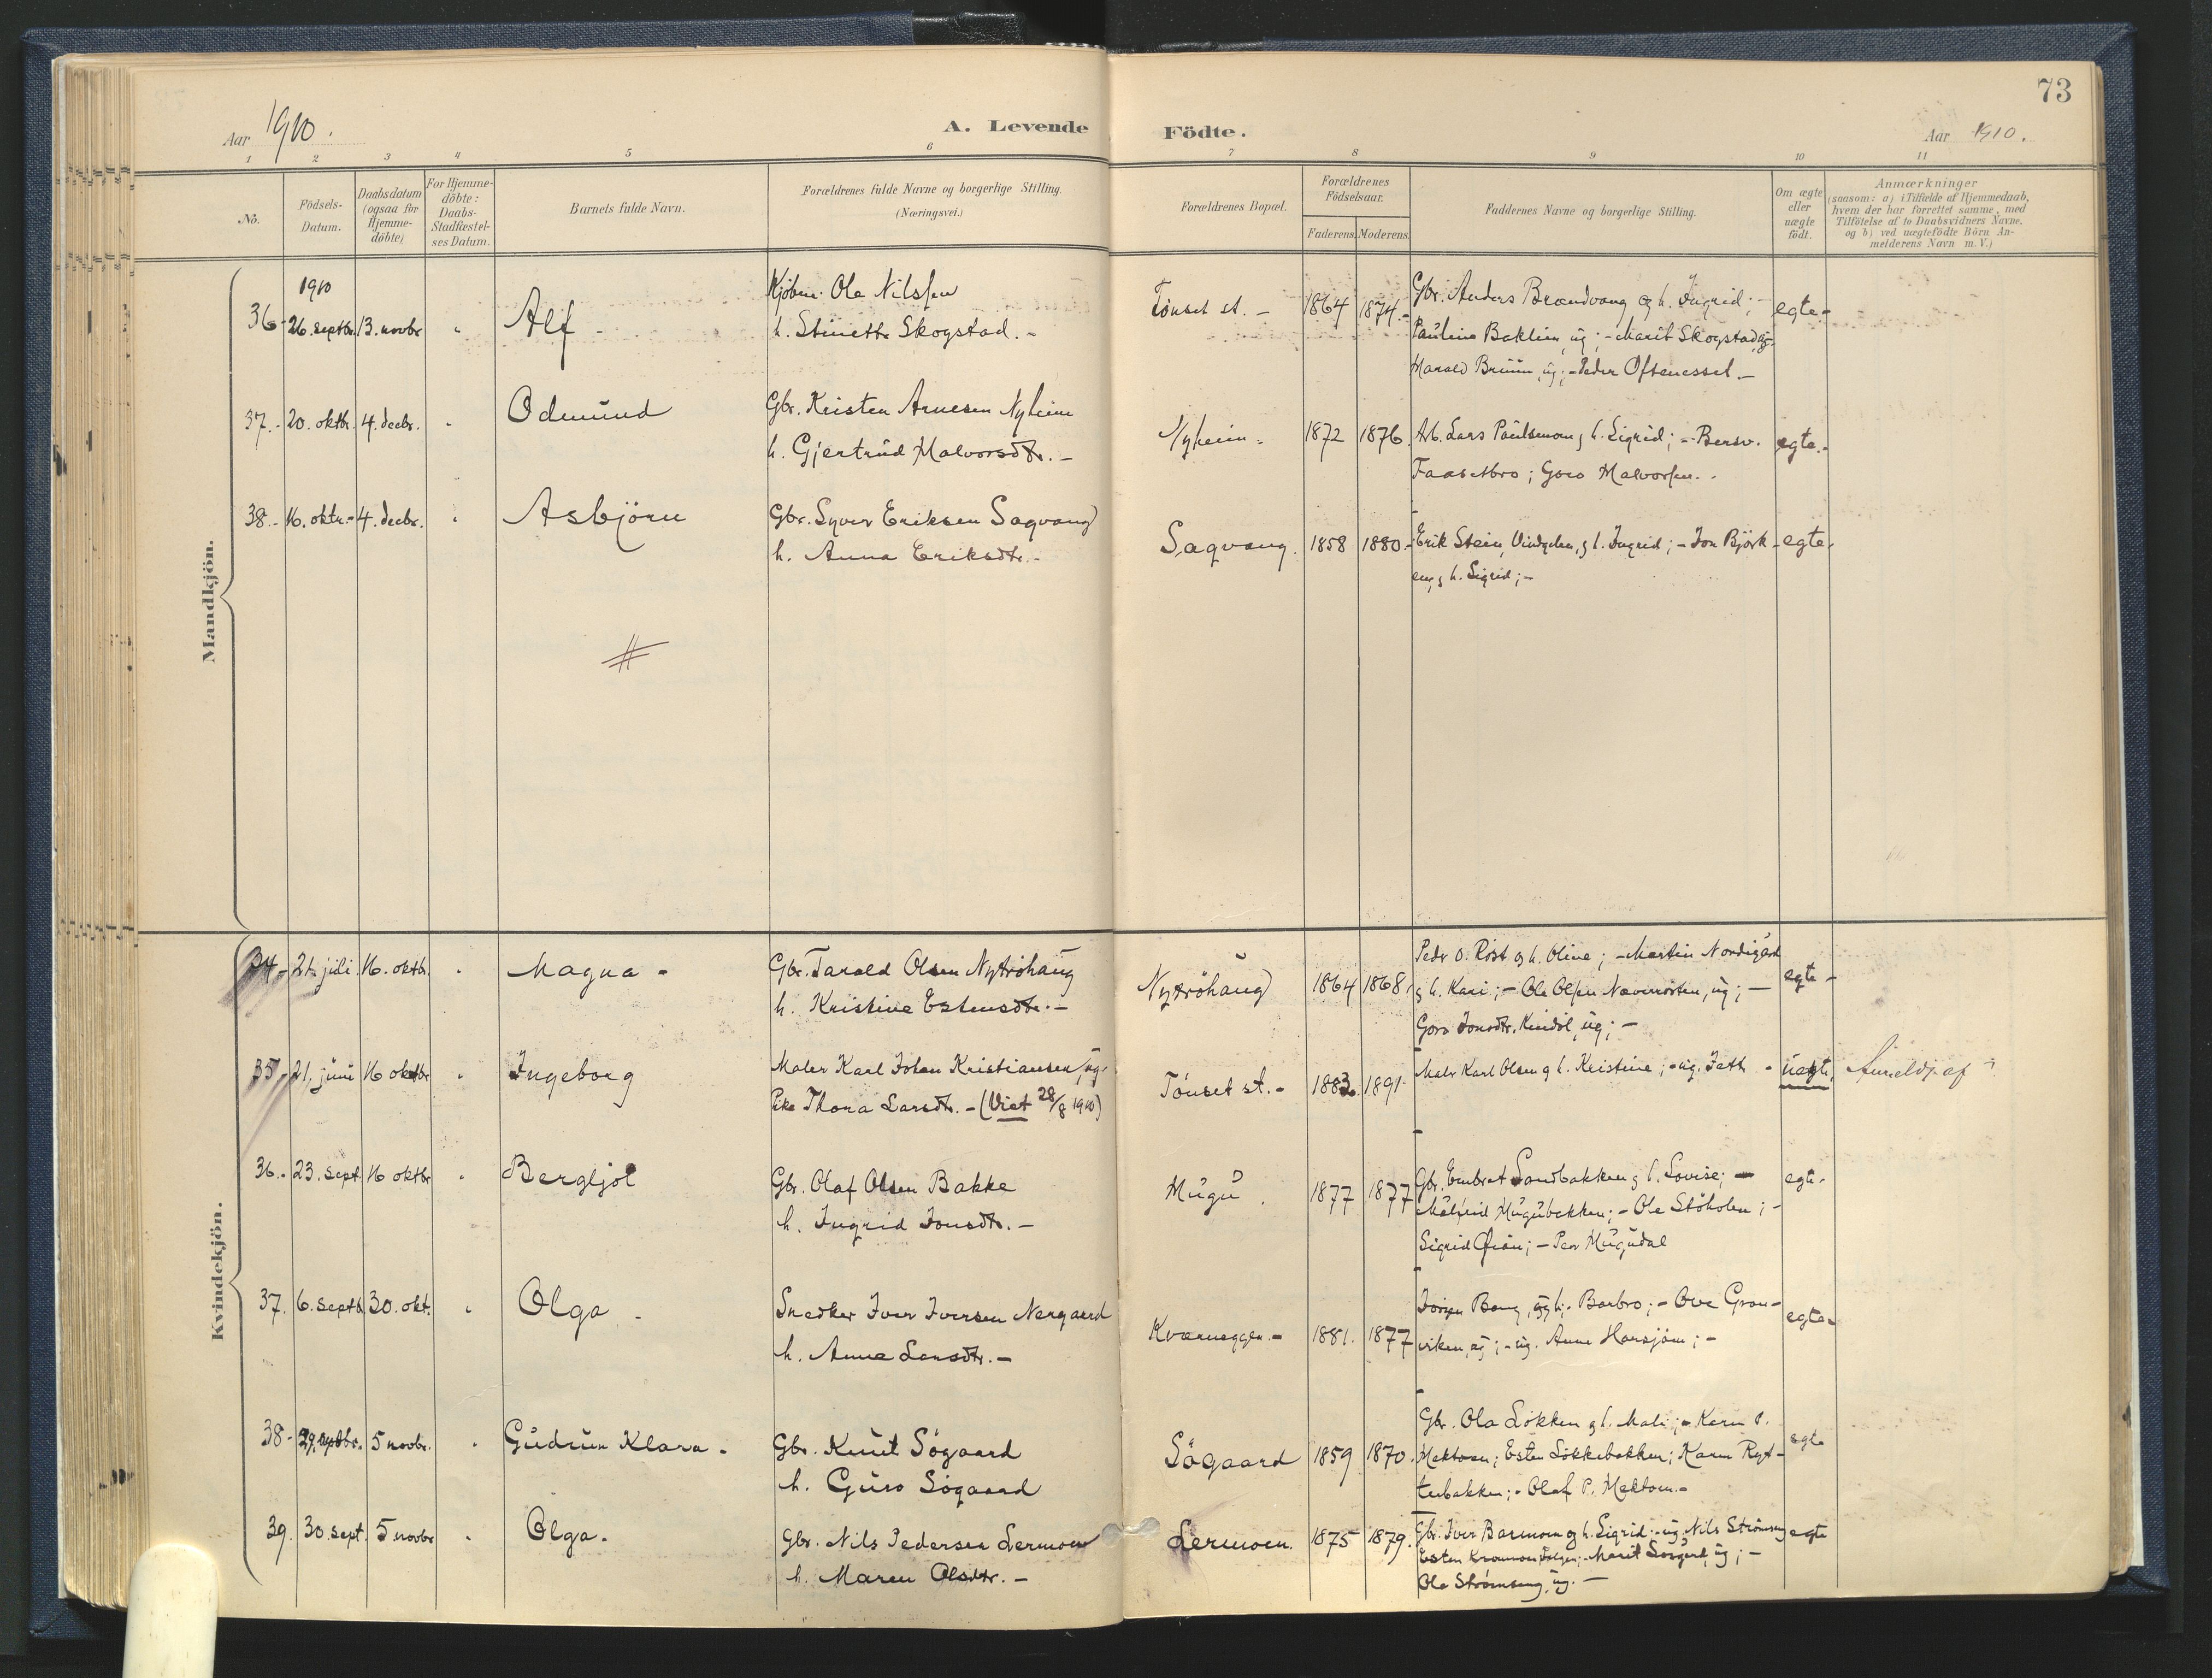 73
Aar 1910.
A. Levende Födte.
Aar 1910.
1 2 3 4 5 6 7 8 9 10 11
No.
Födsels-
Datum.
Daabsdatum
(ogsaa for
Hjemme-
döbte)
For Hjemme-
döbte:
Daabs-
Stadfæstel-
ses Datum.
Barnets fulde Navn.
Forældrenes fulde Navne og borgerlige Stilling.
(Næringsvei.)
Forældrenes Bopæl.
Forældrenes
Födselsaar.
Faderens. Moderens.
Faddernes Navne og borgerlige Stilling.
Om ægte
eller
uægte
födt.
Anmærkninger
(saasom: a) i Tilfælde af Hjemmedaab,
hvem der har forrettet samme, med
Tilföielse af to Daabsvidners Navne.
og b) ved uægtefödte Börn An-
melderens Navn m. V.)
Mandkjön.
1910
36 - 26. septbr. 13. novbr " Alf -
Kjöbm. Ole Nilssen
h. Stinette Skogstad. -
Tönset st. - 1864 1874. -
Gbr. Anders Brændvang og h. Ingrid; -
Pauline Baklien, ug; - Marit Skogstad, ug.
Harald Bruun, ug; - Peder Oftenessel. -
egte. -
37. - 20. oktbr. 4. decbr. " Odmund
Gbr. Kristen Arnesen Nyheim
h. Gjertrud Halvorsdtr. -
Nyheim - 1872 1876.
Arb. Lars Paulsmo og h. Sigrid; - Bersv.
Faasetbro; Goro Halvorsen. -
egte. -
38. - 16. oktr. - 4. decbr. " Asbjörn
Gbr. Syver Eriksen Sagvang
h. Anna Eriksdtr. -
Sagvang. 1858 1880. -
Erik Stein, Vingelen, g h. Ingrid; - Jon Björk -
eng g h. Sigrid; -
egte.
#
Kvindekjön.
34 - 21. juli 16. oktbr. " Magna -
Gbr. Tarald Olsen Nytröhaug
h. Kristine Estensdtr. -
Nytröhaug 1864 1868.
Peder O. Röst og h. Oline; - Martin Nordigård
g h. Kari; - Ole Olsen Næverröten, ug; -
Goro Jonsdtr. Kindöl, ug; -
egte -
35 - 21. juni 16 oktbr " Ingeborg
Maler Karl Johan Kristiansen, ug.
Pike Thora Larsdtr. - (Viet 28/8 1910)
Tönset st. - 1883. 1891.
Maler Karl Olsen g h. Kristine; - ug. Jath -
uegte. Anmeldt af
36. - 23. sept. 16 oktbr " Bergljot
Gbr. Olaf Olsen Bakke
h. Ingrid Jonsdtr. -
Mugu. 1877 1877
Gbr. Embret Sandbakken g h. Lovise; -
Mugubakken; - Ole Stöholen; -
Sigrid Öian; - Peer Mugudal
egte.
37. 6. septb 30. okt. " Olga -
Snedker Iver Iversen Nergaard
h. Anne Larsdtr. -
Kværneggen. - 1881. 1877
Jörgen Bang, og h. Barbro; - Ove Gran-
viken, ug; - ug. Anne Harsjöen; -
egte -
38 - 29. septbr. 5 novbr. " Gudrun Klara. -
Gbr. Knut Sögaard
h. Guro Sögaard
Sögaard 1859 1870.
Gbr. Ola Lökken g h. Mali; - Karen P.
Mektoen; Esten Lökkebakken; Karen Ryt-
terbakken; - Olaf P. Mektoen. -
egte
39. 30. sept. 5 novbr " Olga. -
Gbr. Nils Pedersen Lermoen
h. Maren Olsdtr. -
Lermoen. 1875 1879.
Gbr. Iver Barmoen og h. Sigrid; - ug. Nils Strömseng
Esten Kroamoen, Tolgen; - Marit ug; -
Ole Strömseng, ug. -
egte